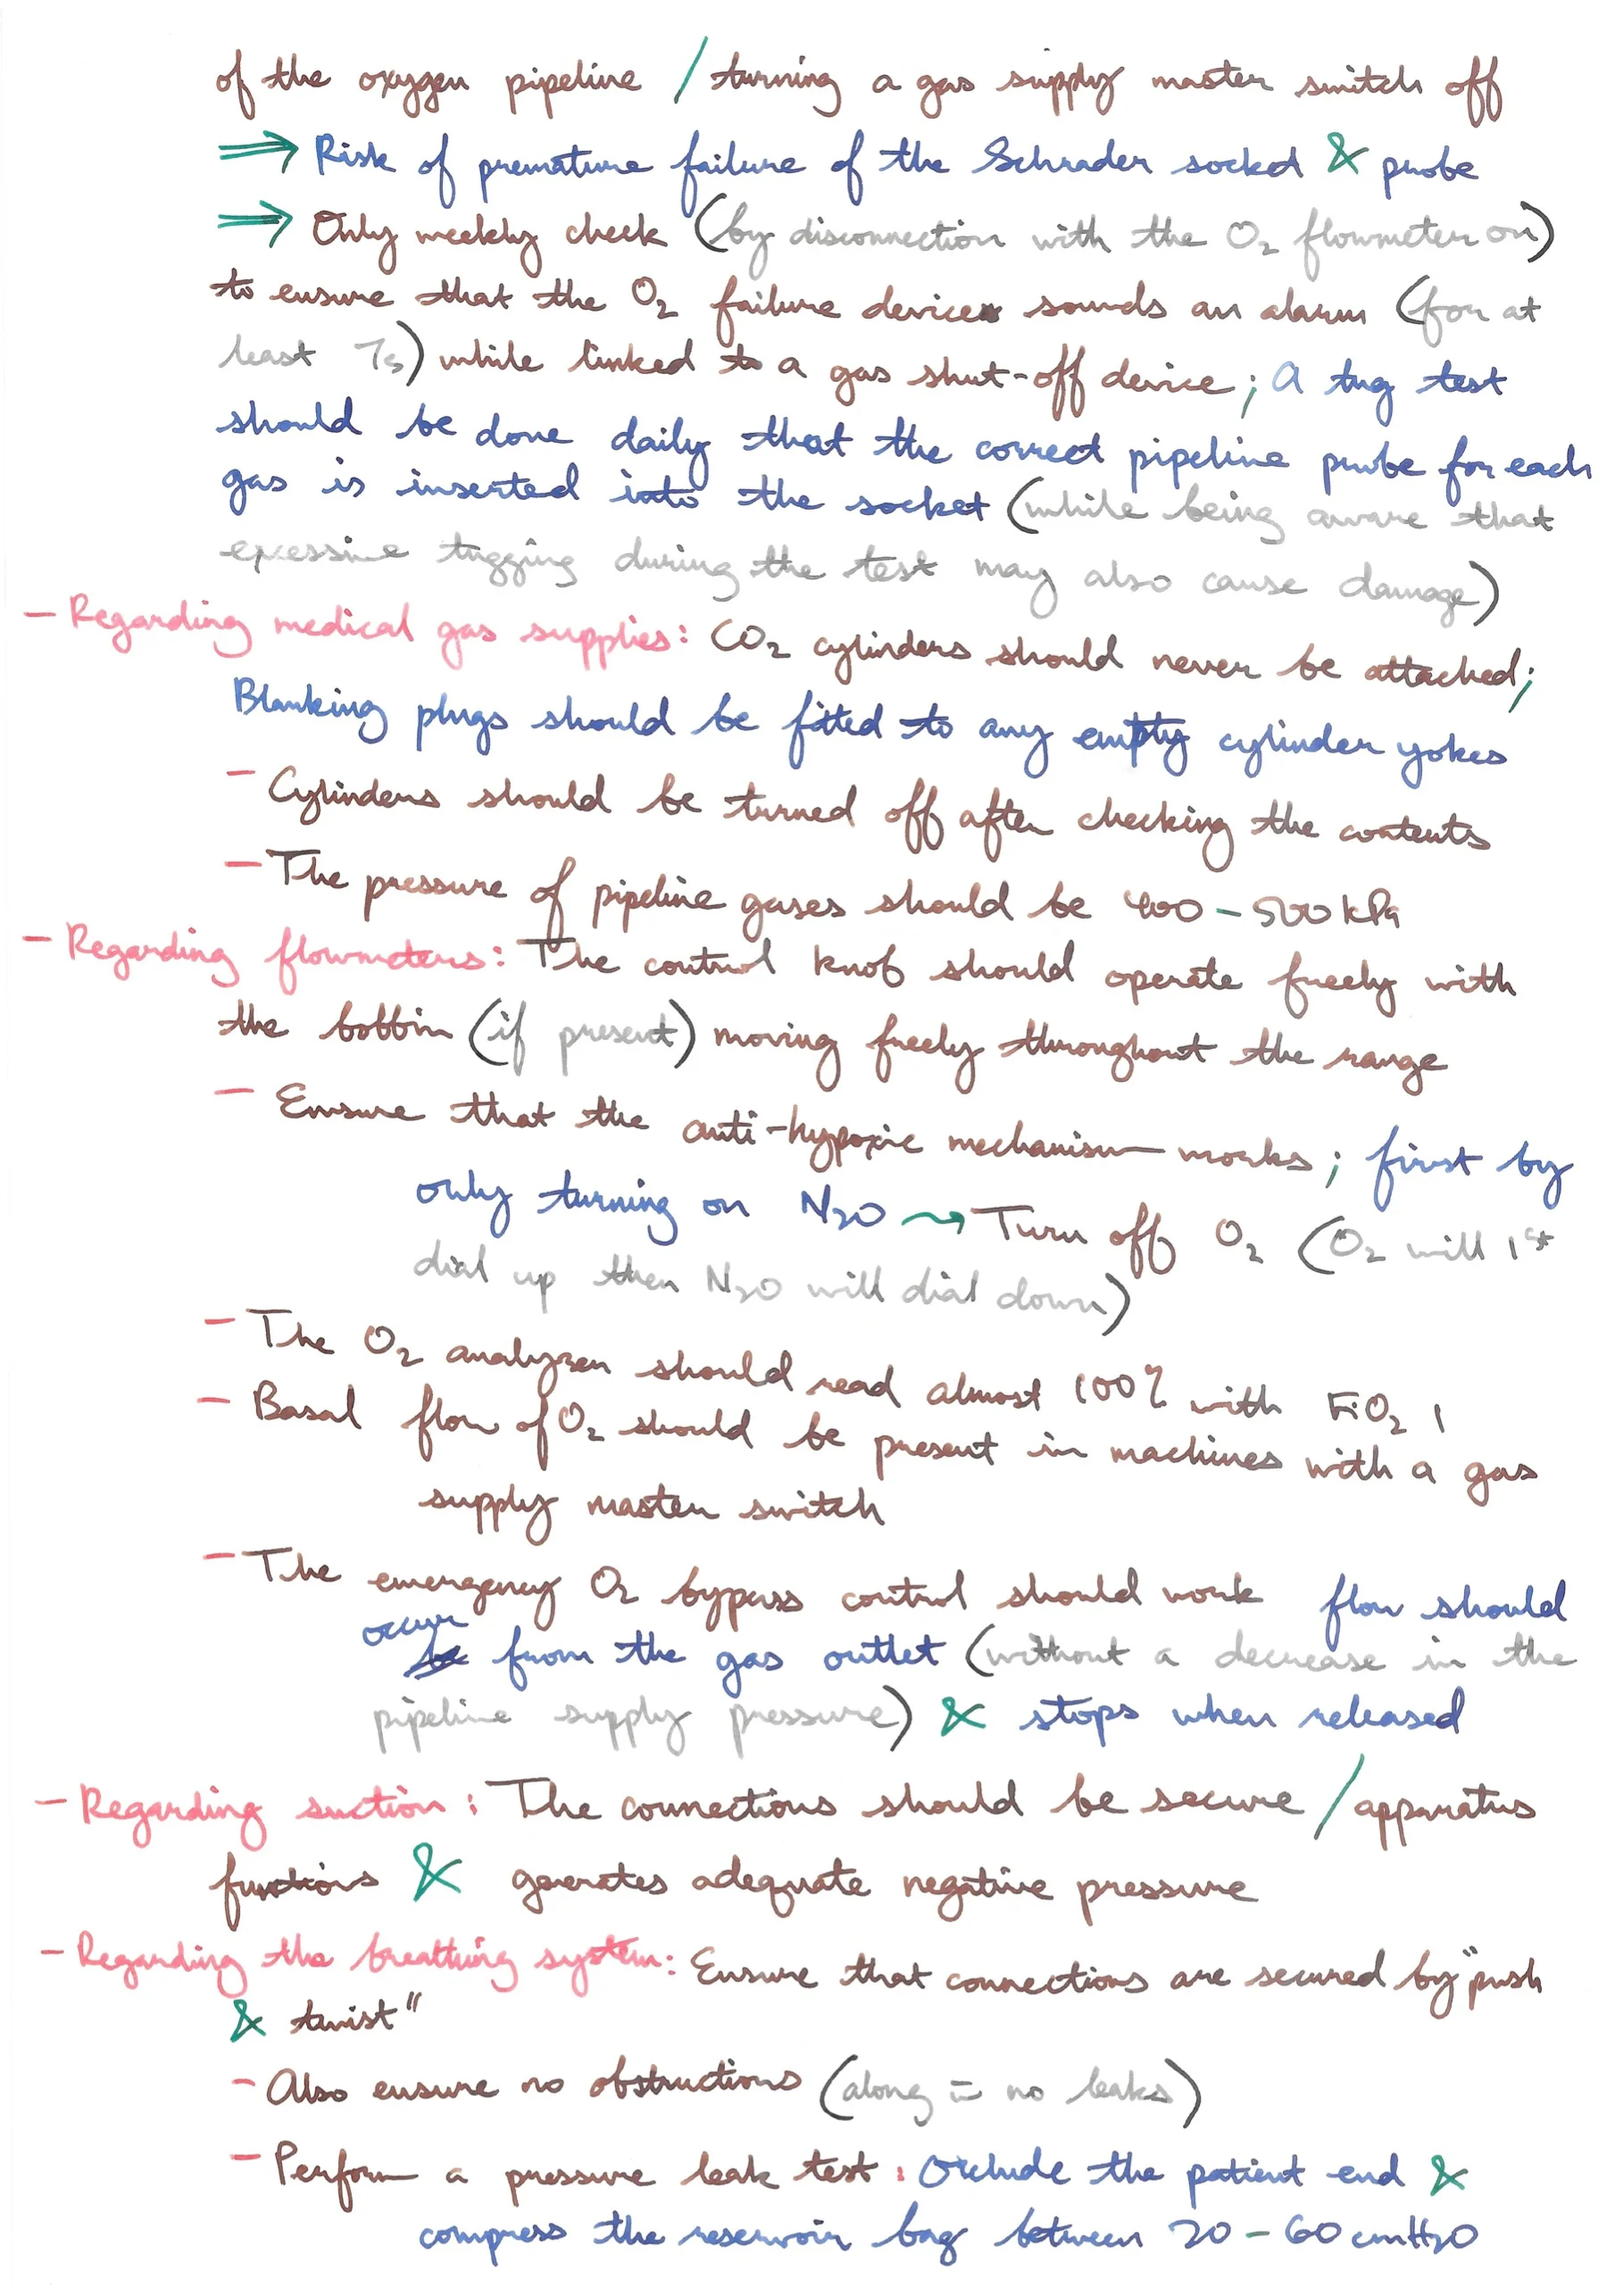 of the oxygen pipeline / turning a gas supply master switch off
⇒ Risk of premature failure of the Schrader socket & probe
⇒ Only weekly check (by disconnection with the O₂ flowmeter on)
to ensure that the O₂ failure device sounds an alarm (for at
least 7s) while linked to a gas shut-off device; A tug test
should be done daily that the correct pipeline probe for each
gas is inserted into the socket (while being aware that
excessive tugging during the test may also cause damage)
- Regarding medical gas supplies: CO₂ cylinders should never be attached;
Blanking plugs should be fitted to any empty cylinder yokes
- Cylinders should be turned off after checking the contents
- The pressure of pipeline gases should be 400 - 500 kPa
- Regarding flowmeters: The control knob should operate freely with
the bobbin (if present) moving freely throughout the range
- Ensure that the anti-hypoxic mechanism works; first by
only turning on N₂O ⇝ Turn off O₂ (O₂ will 1st
dial up then N₂O will dial down)
- The O₂ analyzer should read almost 100% with FiO₂ 1
- Basal flow of O₂ should be present in machines with a gas
supply master switch
- The emergency O₂ bypass control should work flow should
occur from the gas outlet (without a decrease in the
pipeline supply pressure) & stops when released
- Regarding suction: The connections should be secure / apparatus
functions & generates adequate negative pressure
- Regarding the breathing system: Ensure that connections are secured by "push
& twist"
- Also ensure no obstructions (along c̄ no leaks)
- Perform a pressure leak test: Occlude the patient end &
compress the reservoir bag between 20 - 60 cmH₂O